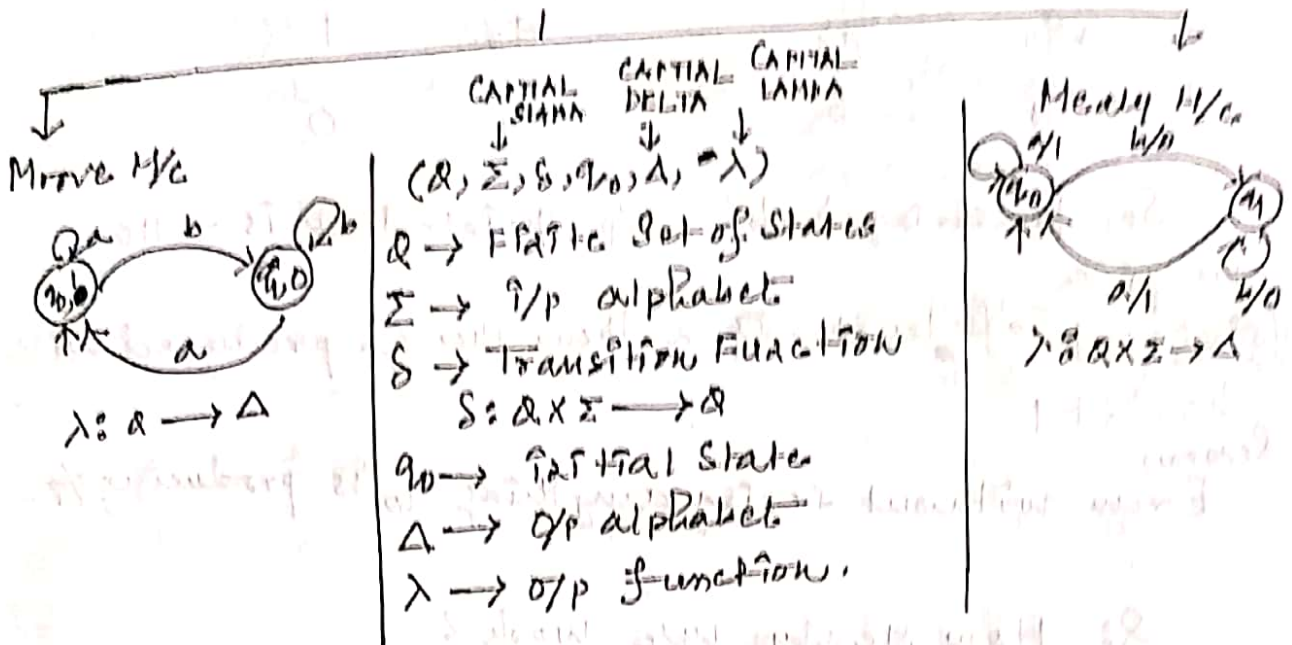 Moore M/c
a
b
b
q0, 1
q1, 0
a
λ: Q → Δ
CAPTIAL SIGMA
CAPTIAL DELTA
CAPITAL LAMDA
(Q, Σ, δ, q0, Δ, λ)
Q → Finite Set of States
Σ → i/p alphabet
δ → Transition Function
δ: Q X Σ → Q
q0 → initial State
Δ → o/p alphabet
λ → o/p function.
Mealy M/c
a/1
b/0
q0
q1
a/1
b/0
λ: Q X Σ → Δ